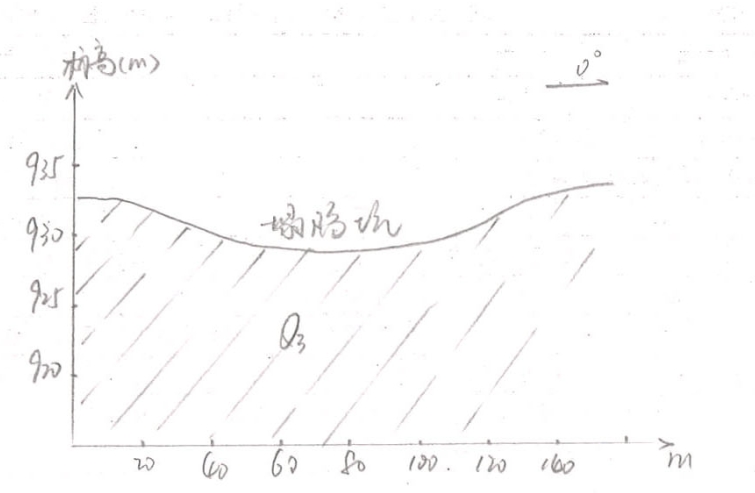 标高(m)
0°
935
930
925
920
塌陷坑
Q₃
20 40 60 80 100. 120 140 m